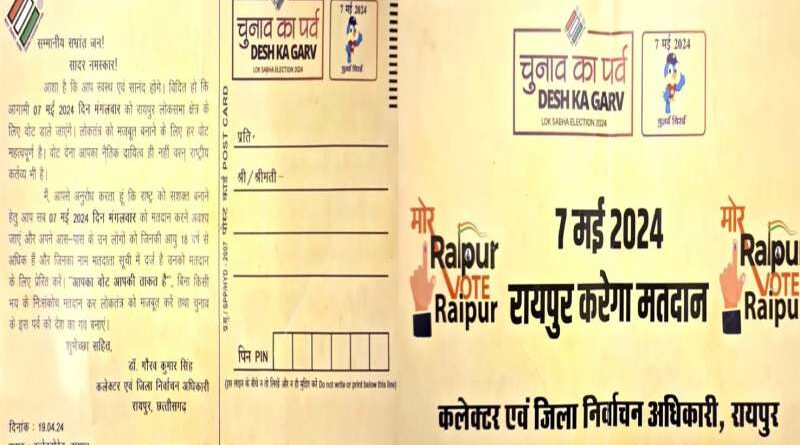 सम्मानीय सभ्रांत जन!
सादर नमस्कार!
आशा है कि आप स्वस्थ एवं सानंद होंगे। विदित हो कि
आगामी 07 मई 2024 दिन मंगलवार को रायपुर लोकसभा क्षेत्र के
लिए वोट डाले जाएंगे। लोकतंत्र को मजबूत बनाने के लिए हर वोट
महत्वपूर्ण है। वोट देना आपका नैतिक दायित्व ही नहीं वरन् राष्ट्रीय
कर्तव्य भी है।
मैं, आपसे अनुरोध करता हूं कि राष्ट्र को सशक्त बनाने
हेतु आप सब 07 मई 2024 दिन मंगलवार को मतदान करने अवश्य
जाएं और अपने आस-पास के उन लोगों को जिनकी आयु 18 वर्ष से
अधिक हैं और जिनका नाम मतदाता सूची में दर्ज है उनको मतदान
के लिए प्रेरित करें। "आपका वोट आपकी ताकत है", बिना किसी
भय के निःसंकोच मतदान कर लोकतंत्र को मजबूत करें तथा चुनाव
के इस पर्व को देश का गर्व बनाएं।
शुभेच्छा सहित,
डॉ. गौरव कुमार सिंह
कलेक्टर एवं जिला निर्वाचन अधिकारी
रायपुर, छत्तीसगढ़
दिनांक : 19.04.24
पोस्ट कार्ड POST CARD
SPP/HYD - 2007
चुनाव का पर्व
DESH KA GARV
LOK SABHA ELECTION 2024
7 मई 2024
चुनई चिरई
प्रति,
श्री/श्रीमती-
पिन PIN
(इस लाइन के नीचे न तो लिखें और न ही मुद्रित करें Do not write or print below this line)
चुनाव का पर्व
DESH KA GARV
LOK SABHA ELECTION 2024
7 मई 2024
चुनई चिरई
मोर
Raipur
VOTE
Raipur
7 मई 2024
रायपुर करेगा मतदान
मोर
Raipu
VOTE
Raipu
कलेक्टर एवं जिला निर्वाचन अधिकारी, रायपुर